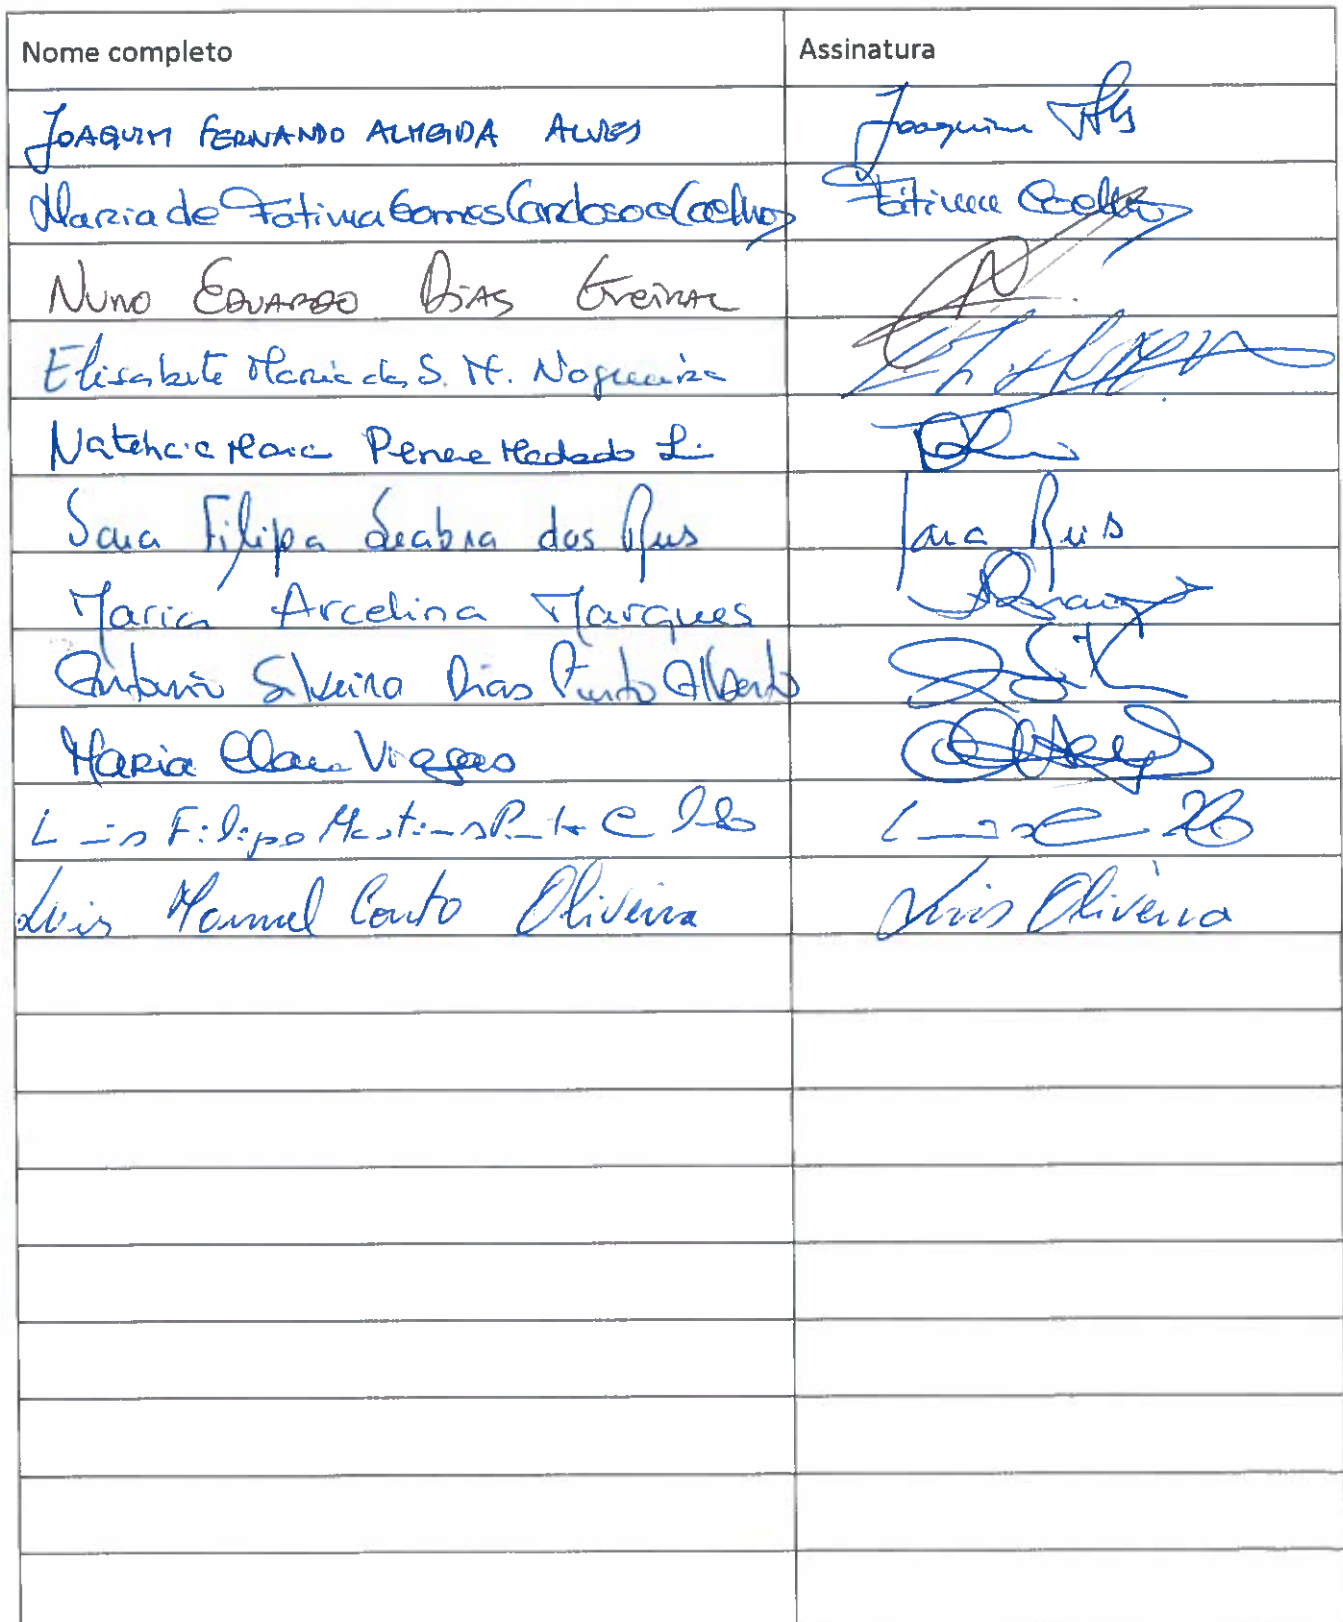 Nome completo Assinatura
JOAQUIM FERNANDO ALMEIDA ALVES Joaquim Alves
Maria de Fátima Gomes Cardoso Coelho Fátima Coelho
NUNO EDUARDO DIAS
Elisabete Maria da S. M. Nogueira
Natércia Maria Machado
Sara Filipa Seabra dos Reis Sara Reis
Maria Arcelina Marques
António Silveira Dias Pinto Alberto
Maria Clara Viegas
Luis Filipe Martins
Luis Manuel Couto Oliveira Luis Oliveira